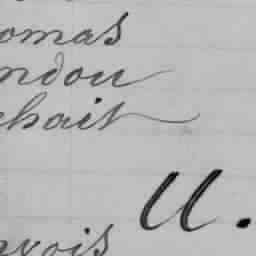 omas
ndou
chait
U.
vois